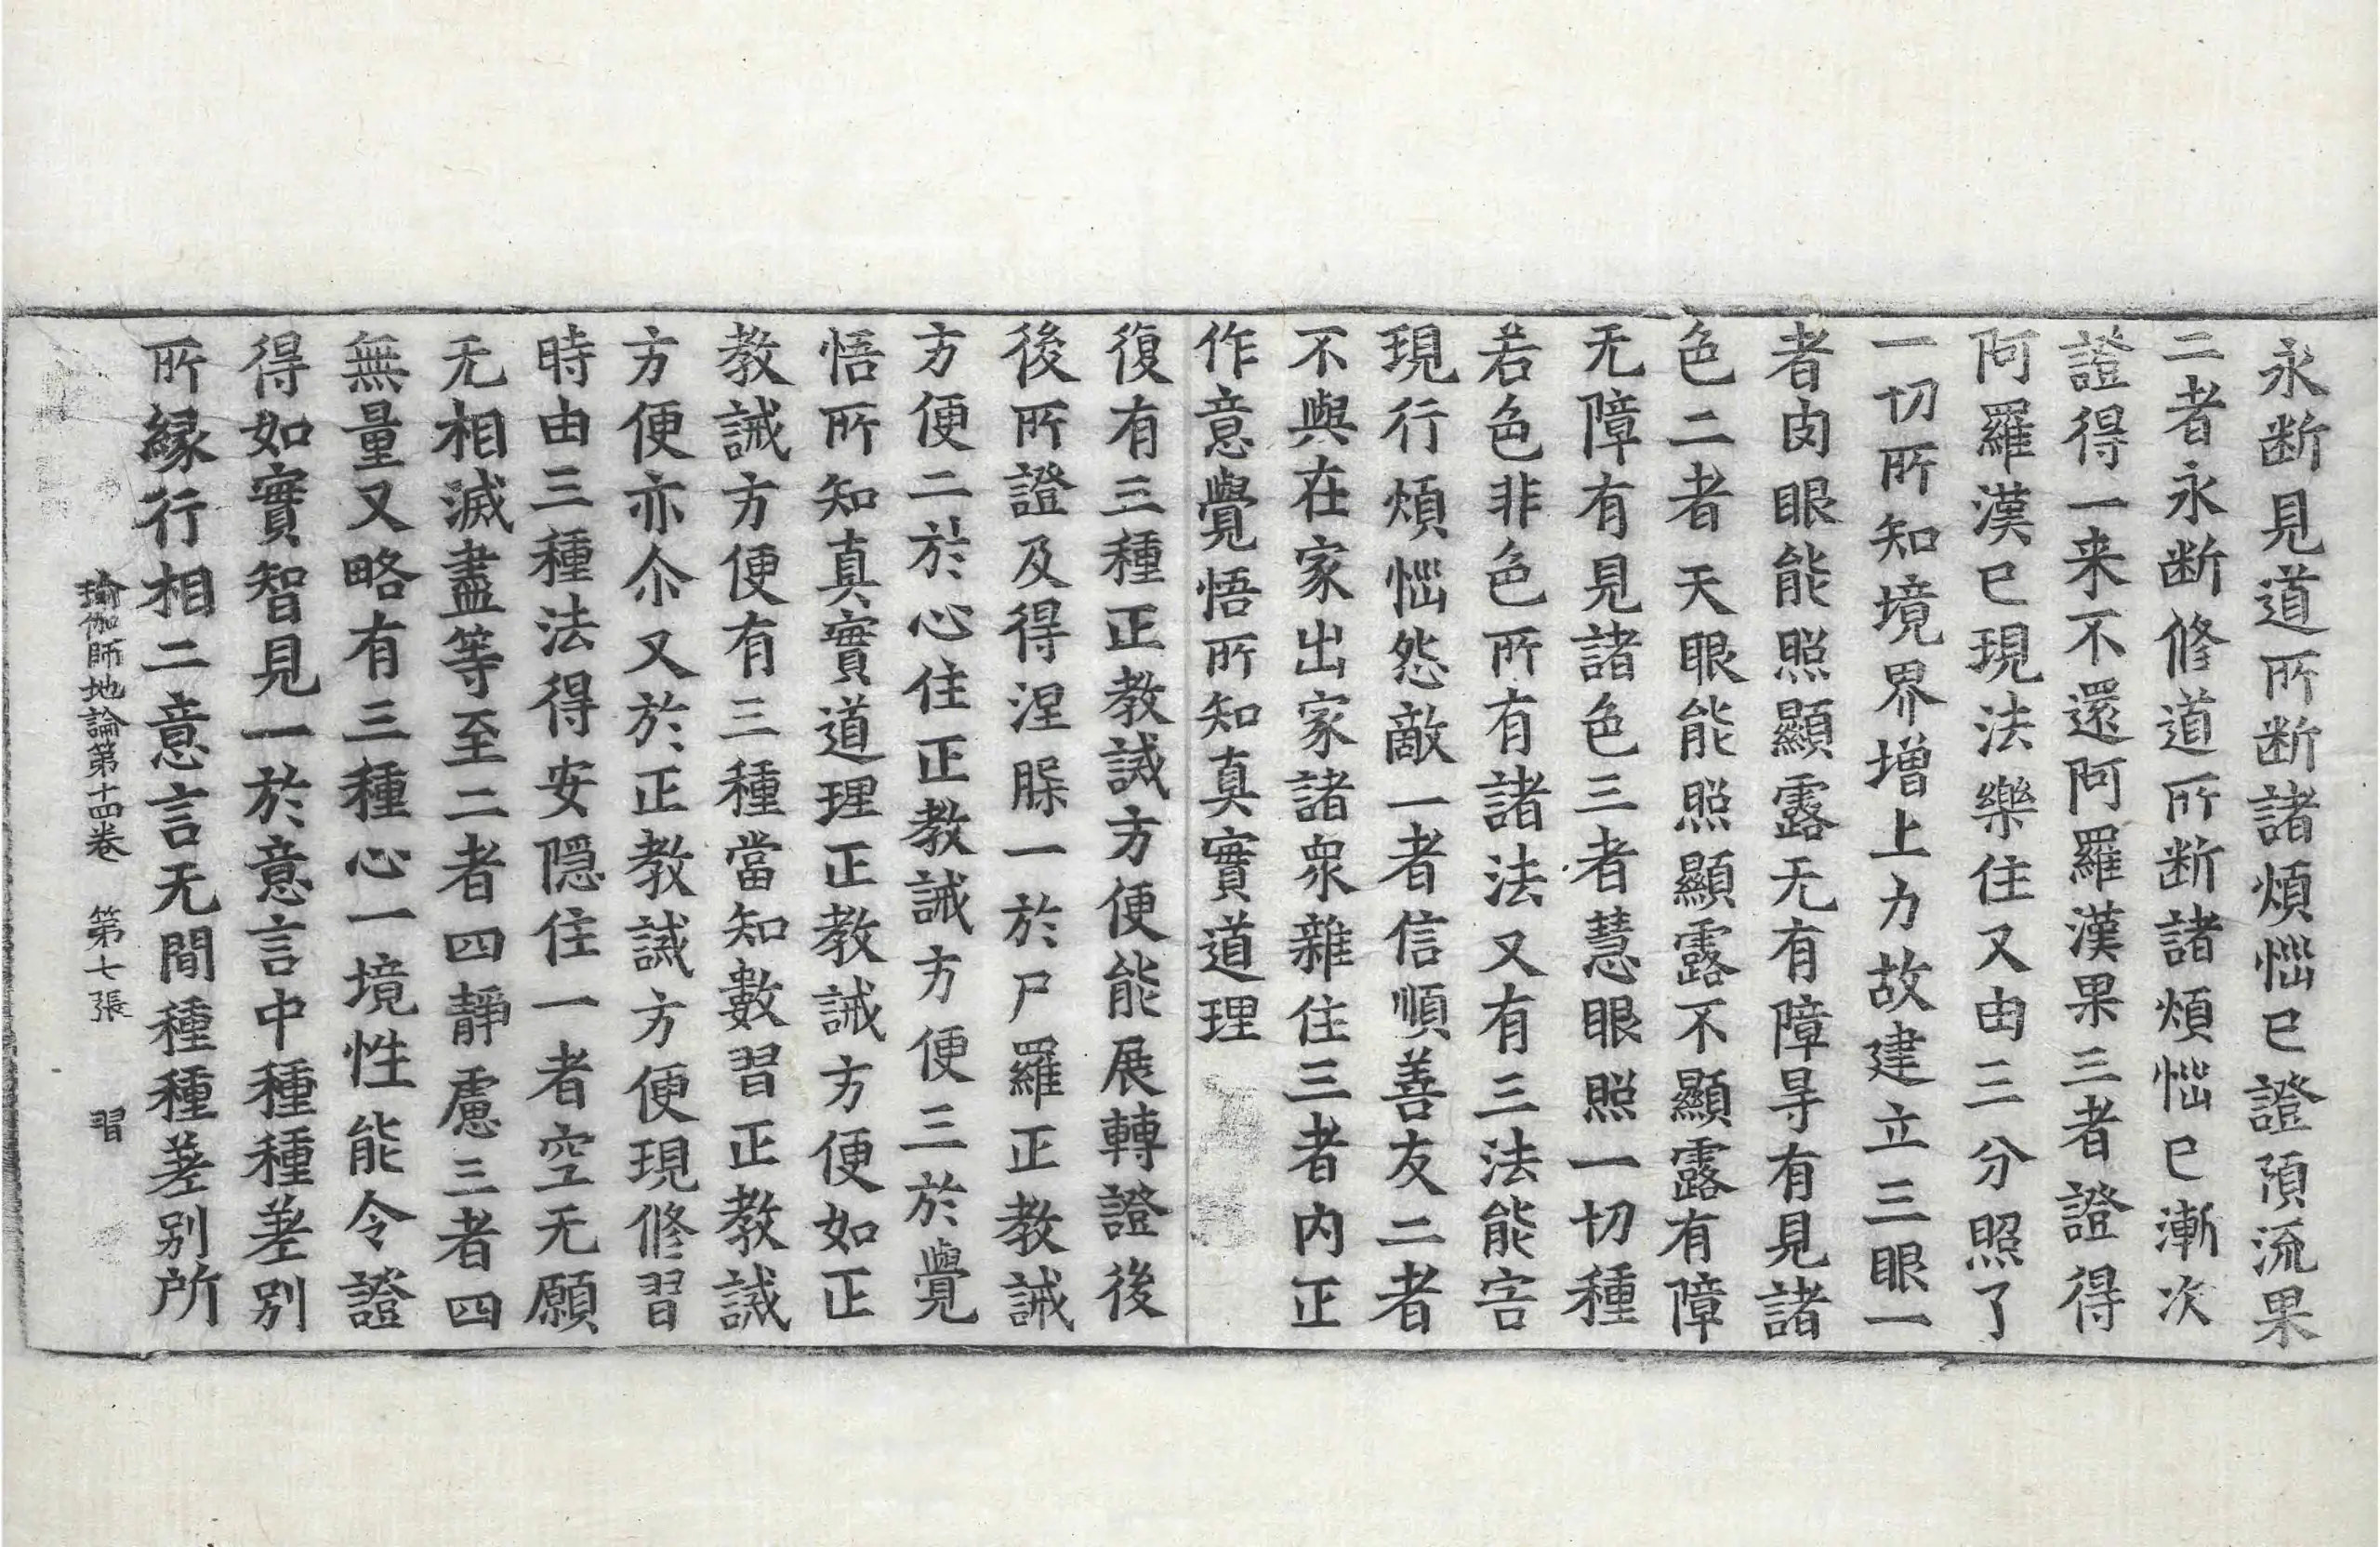 永断見道所断諸煩惱已證預流果
二者永断修道所断諸煩惱已漸次
證得一来不還阿羅漢果三者證得
阿羅漢已現法樂住又由三分照了
一切所知境界增上力故建立三眼一
者肉眼能照顯露无有障㝵有見諸
色二者天眼能照顯露不顯露有障
无障有見諸色三者慧眼照一切種
若色非色所有諸法又有三法能害
現行煩惱怨敵一者信順善友二者
不與在家出家諸衆雜住三者内正
作意覺悟所知真實道理
復有三種正教誡方便能展轉證後
後所證及得涅槃一於尸羅正教誡
方便二於心住正教誡方便三於覺
悟所知真實道理正教誡方便如正
教誡方便有三種當知數習正教誡
方便亦尒又於正教誡方便現修習
時由三種法得安隱住一者空无願
无相滅盡等至二者四靜慮三者四
無量又略有三種心一境性能令證
得如實智見一於意言中種種差别
所緣行相二意言无間種種差别所
瑜伽師地論第十四卷　第七張　習